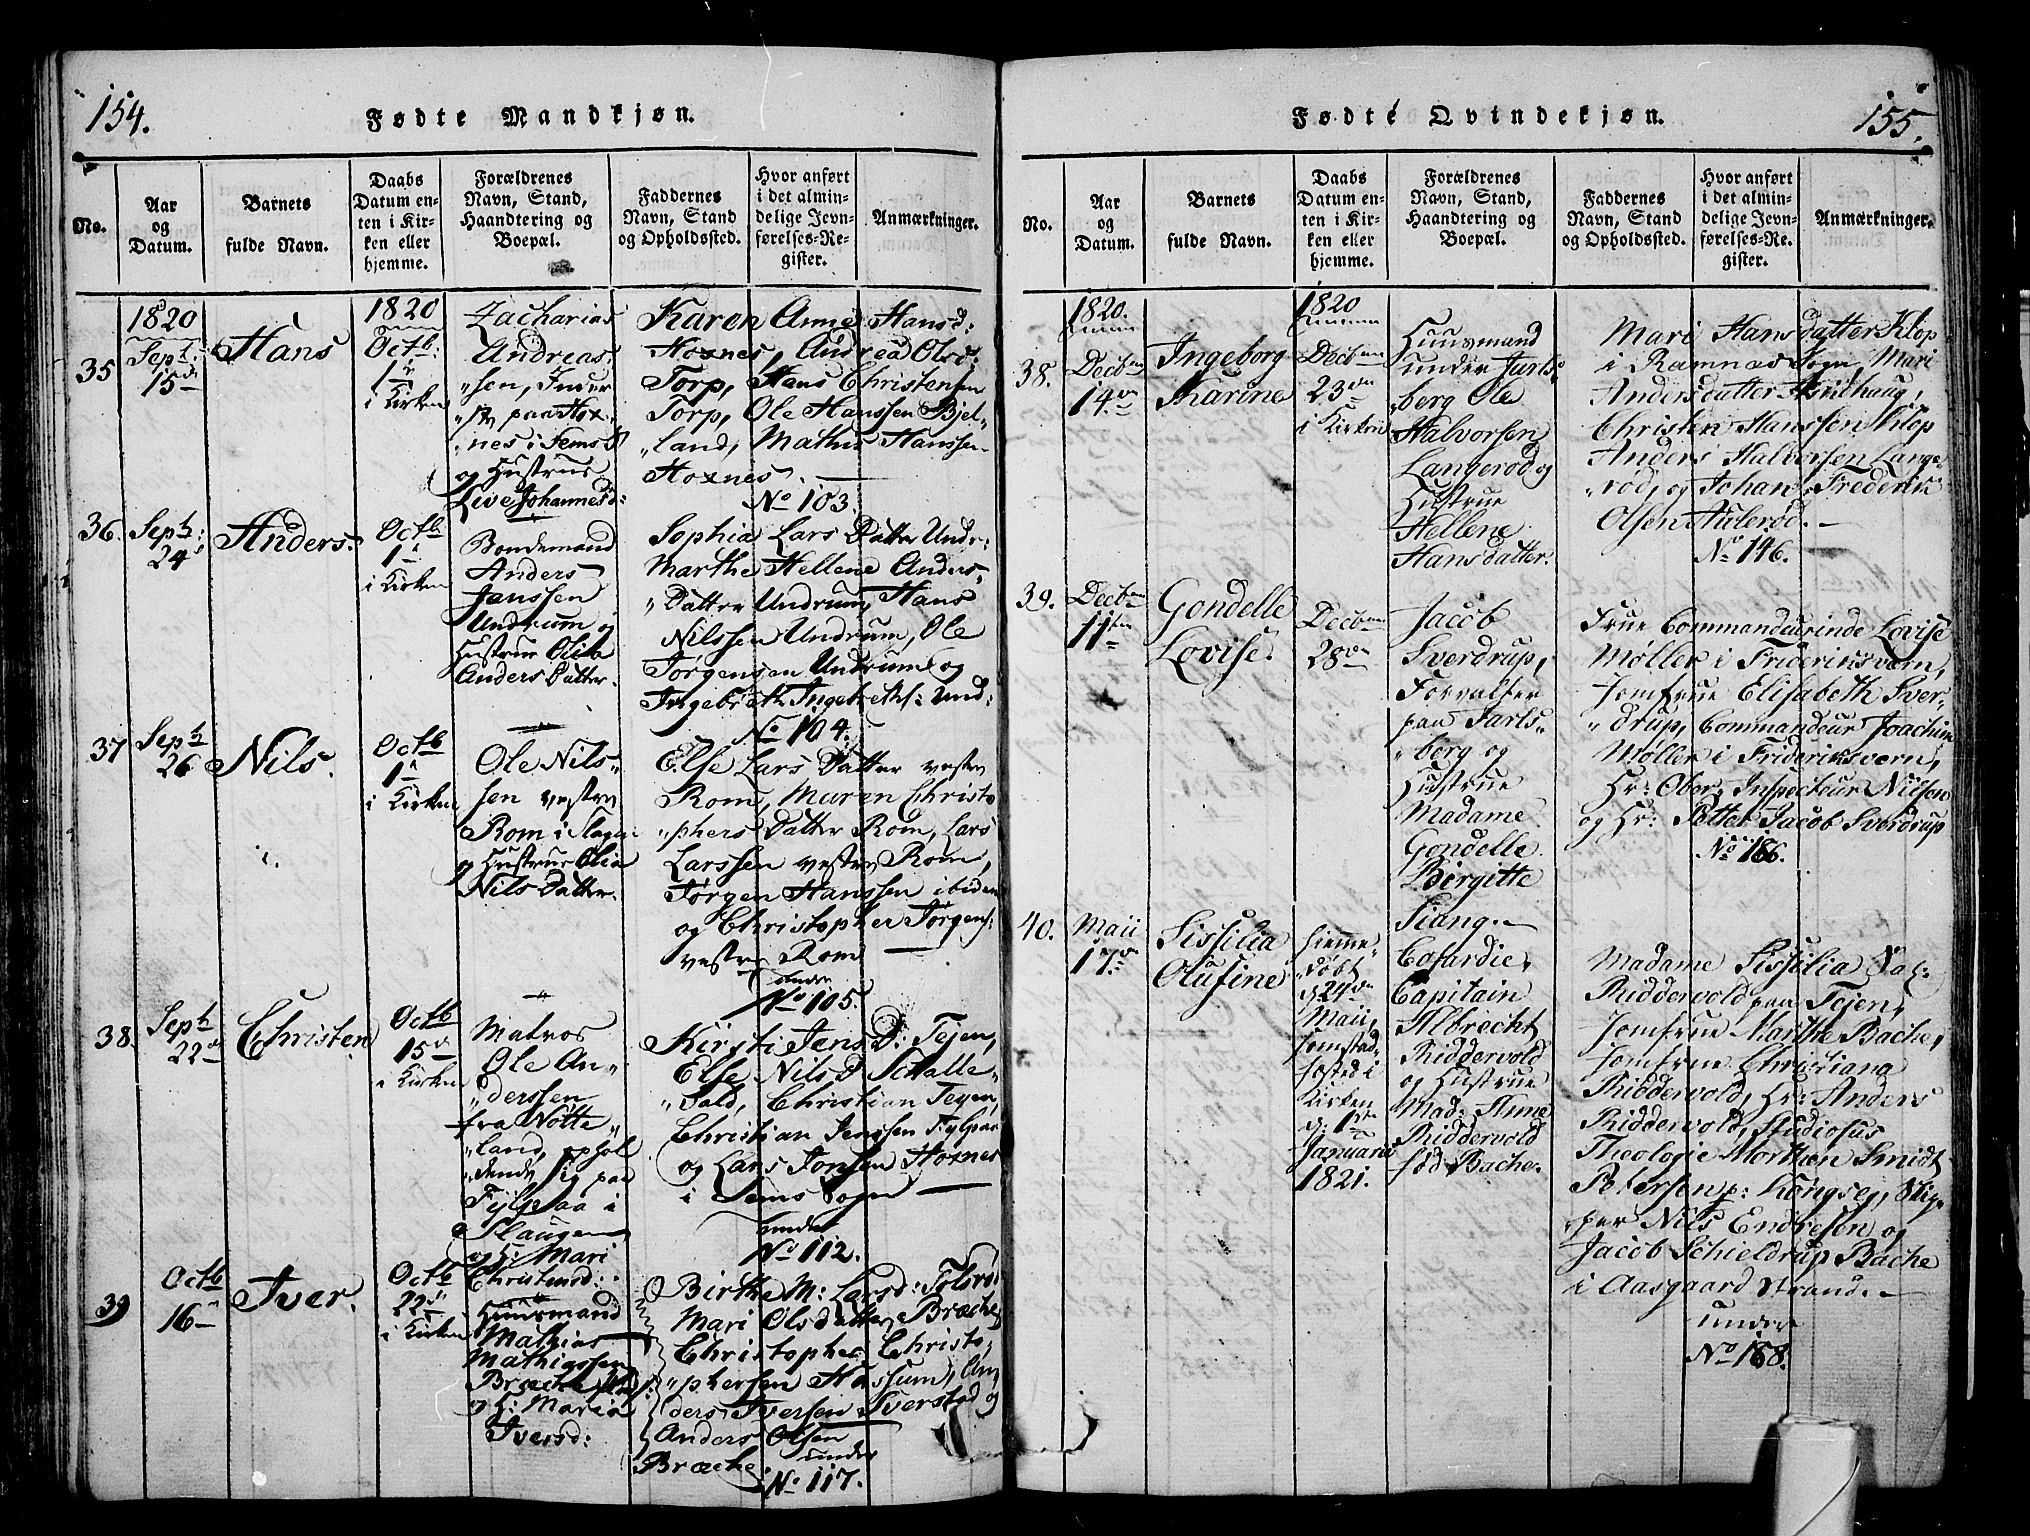 154.
Fødte Mandkjøn.
No.
Aar
og
Datum.
Barnets
fulde Navn.
Daabs
Datum en-
ten i Kir-
ken eller
hjemme.
Forældrenes
Navn, Stand,
Haandtering og
Boepæl.
Faddernes
Navn, Stand
og Opholdssted.
Hvor anført
i det almin-
delige Jevn-
førelses-Re-
gister.
Anmærkninger.
35
1820
Sept:
15de
Hans
1820
Octb:
1ste
i Kirken
Zacharias
Andreas
"sen, Inder
"st paa Hox
"nes i Sems S
og Hustrue
Live Johannesd:
Karen Anne Hansd:
Hoxnes, Andrea Olsd:
Torp, Hans Christensen
Torp, Ole Hanssen Bjel-
"land, Mathis Hanssen
Hoxnes.
No 103.
36.
Septb:
24
Anders.
Octb
1
i Kirken
Bondemand
Anders
Janssen
Undrum og
Hustrue Olia
Anders Datter.
Sophia Lars Datter Undr:
Marthe Hellene Anders
"Datter Undrum, Hans
Nilssen Undrum, Ole
Jorgensen Undrum og
Ingebreth Ingebreths: Und:
No 104.
37
Septb
26
Nils.
Octb
1
i Kirken
Ole Nils"
sen vestre
Rom i Slagen
og Hustrue Olia
Nils Datter.
Else Lars Datter vestre
Rom, Maren Christo
"phers Datter Rom, Lars
Larssen vestre Rom,
Jørgen Hanssen ibidem
og Christopher Jørgens:
vestre Rom
under
No 105.
38.
Septb
22de
Christen
Octb
15de
i Kirken
Matros
Ole An"
"derssen
fra Nötte"
"land, ophol
"dende sig paa
Fylpaa i
Slaugen
og H: Mari
Christensd:
Kirsti Jens D: Tejen,
Else Nils D Schalle"
"Vald, Christian Tejen,
Christian Jenssen Fylpaa
og Lars Jonsen Hoxnes
i Sems Sogn
under
No 112.
39
Octb
16
Iver.
Octb
22de
i Kirken
Huusmand
Mathias
Mathiassen
Bræche
og H: Maria
Iversd:
Birthe M: Larsd: Tolsrød
Mari Olsdatter Bræche
Christopher Christo"
"phersen Hassum, An"
ders Iversen Iverstad og
Anders Olsen
Bræche
under
No 117.
155.
Fødte Qvindekjøn.
No.
Aar
og
Datum.
Barnets
fulde Navn.
Daabs
Datum en-
ten i Kir-
ken eller
hjemme.
Forældrenes
Navn, Stand,
Haandtering og
Boepæl.
Faddernes
Navn, Stand
og Opholdssted.
Hvor anført
i det almin-
delige Jevn-
førelses-Re-
gister.
Anmærkninger.
38.
1820.
Decbr
14de
Ingeborg
Karine
1820
Decbr
23de
i Kirken
Huusmand
under Jarls"
"berg Ole
Halvorsen
Langerød og
Hustrue
Hellene
Hansdatter.
Mari Hansdatter Klop
i Ramnæs Sogn, Mari
Andersdatter
Christen Hanssen Klop
Anders Halvorsen Lange"
"rød, og Johan Frederik
Olsen Aulerød.
No 146.
39.
Decb
11te
Gondelle
Lovise.
Decb
28de
Jacob
Sverdrup,
Forvalter
paa Jarls"
"berg og
Hustrue
Madame
Gondelle
Birgitte
Siang.
Frue Commandeurinde Lovise
Møller i Frideriksværn,
Jomfrue Elisabeth Sver"
"drup, Commandeur Joachim
Møller i Frideriksværn,
Hr: Ober Inspecteur Nilsen
og Hr: Petter Jacob Sverdrup
No 166.
40.
Maii
17de
Sissilia
Olufine
hjemme"
"døbt
d: 24de
Maii,
fremstad"
fæsted i
Kirken
d: 1ste
Januarii
1821.
Cofardie,
Capitain
Albrecht
Riddervold
og Hustrue
Mad: Anne
Riddervold
fød Bache.
Madame Sissilia Sal:
Riddervold paa Tejen,
Jomfrue Marthe Bache,
Jomfrue Christiana
Riddervold, Hr: Anders
Riddervold, Studiosus
Theologie Morthen Smidt
Petersen p: Kongseg, Skip"
"per Nils Endresen og
Jacob Schieldrup Bache
i Aasgaard Strand.
under
No 168.